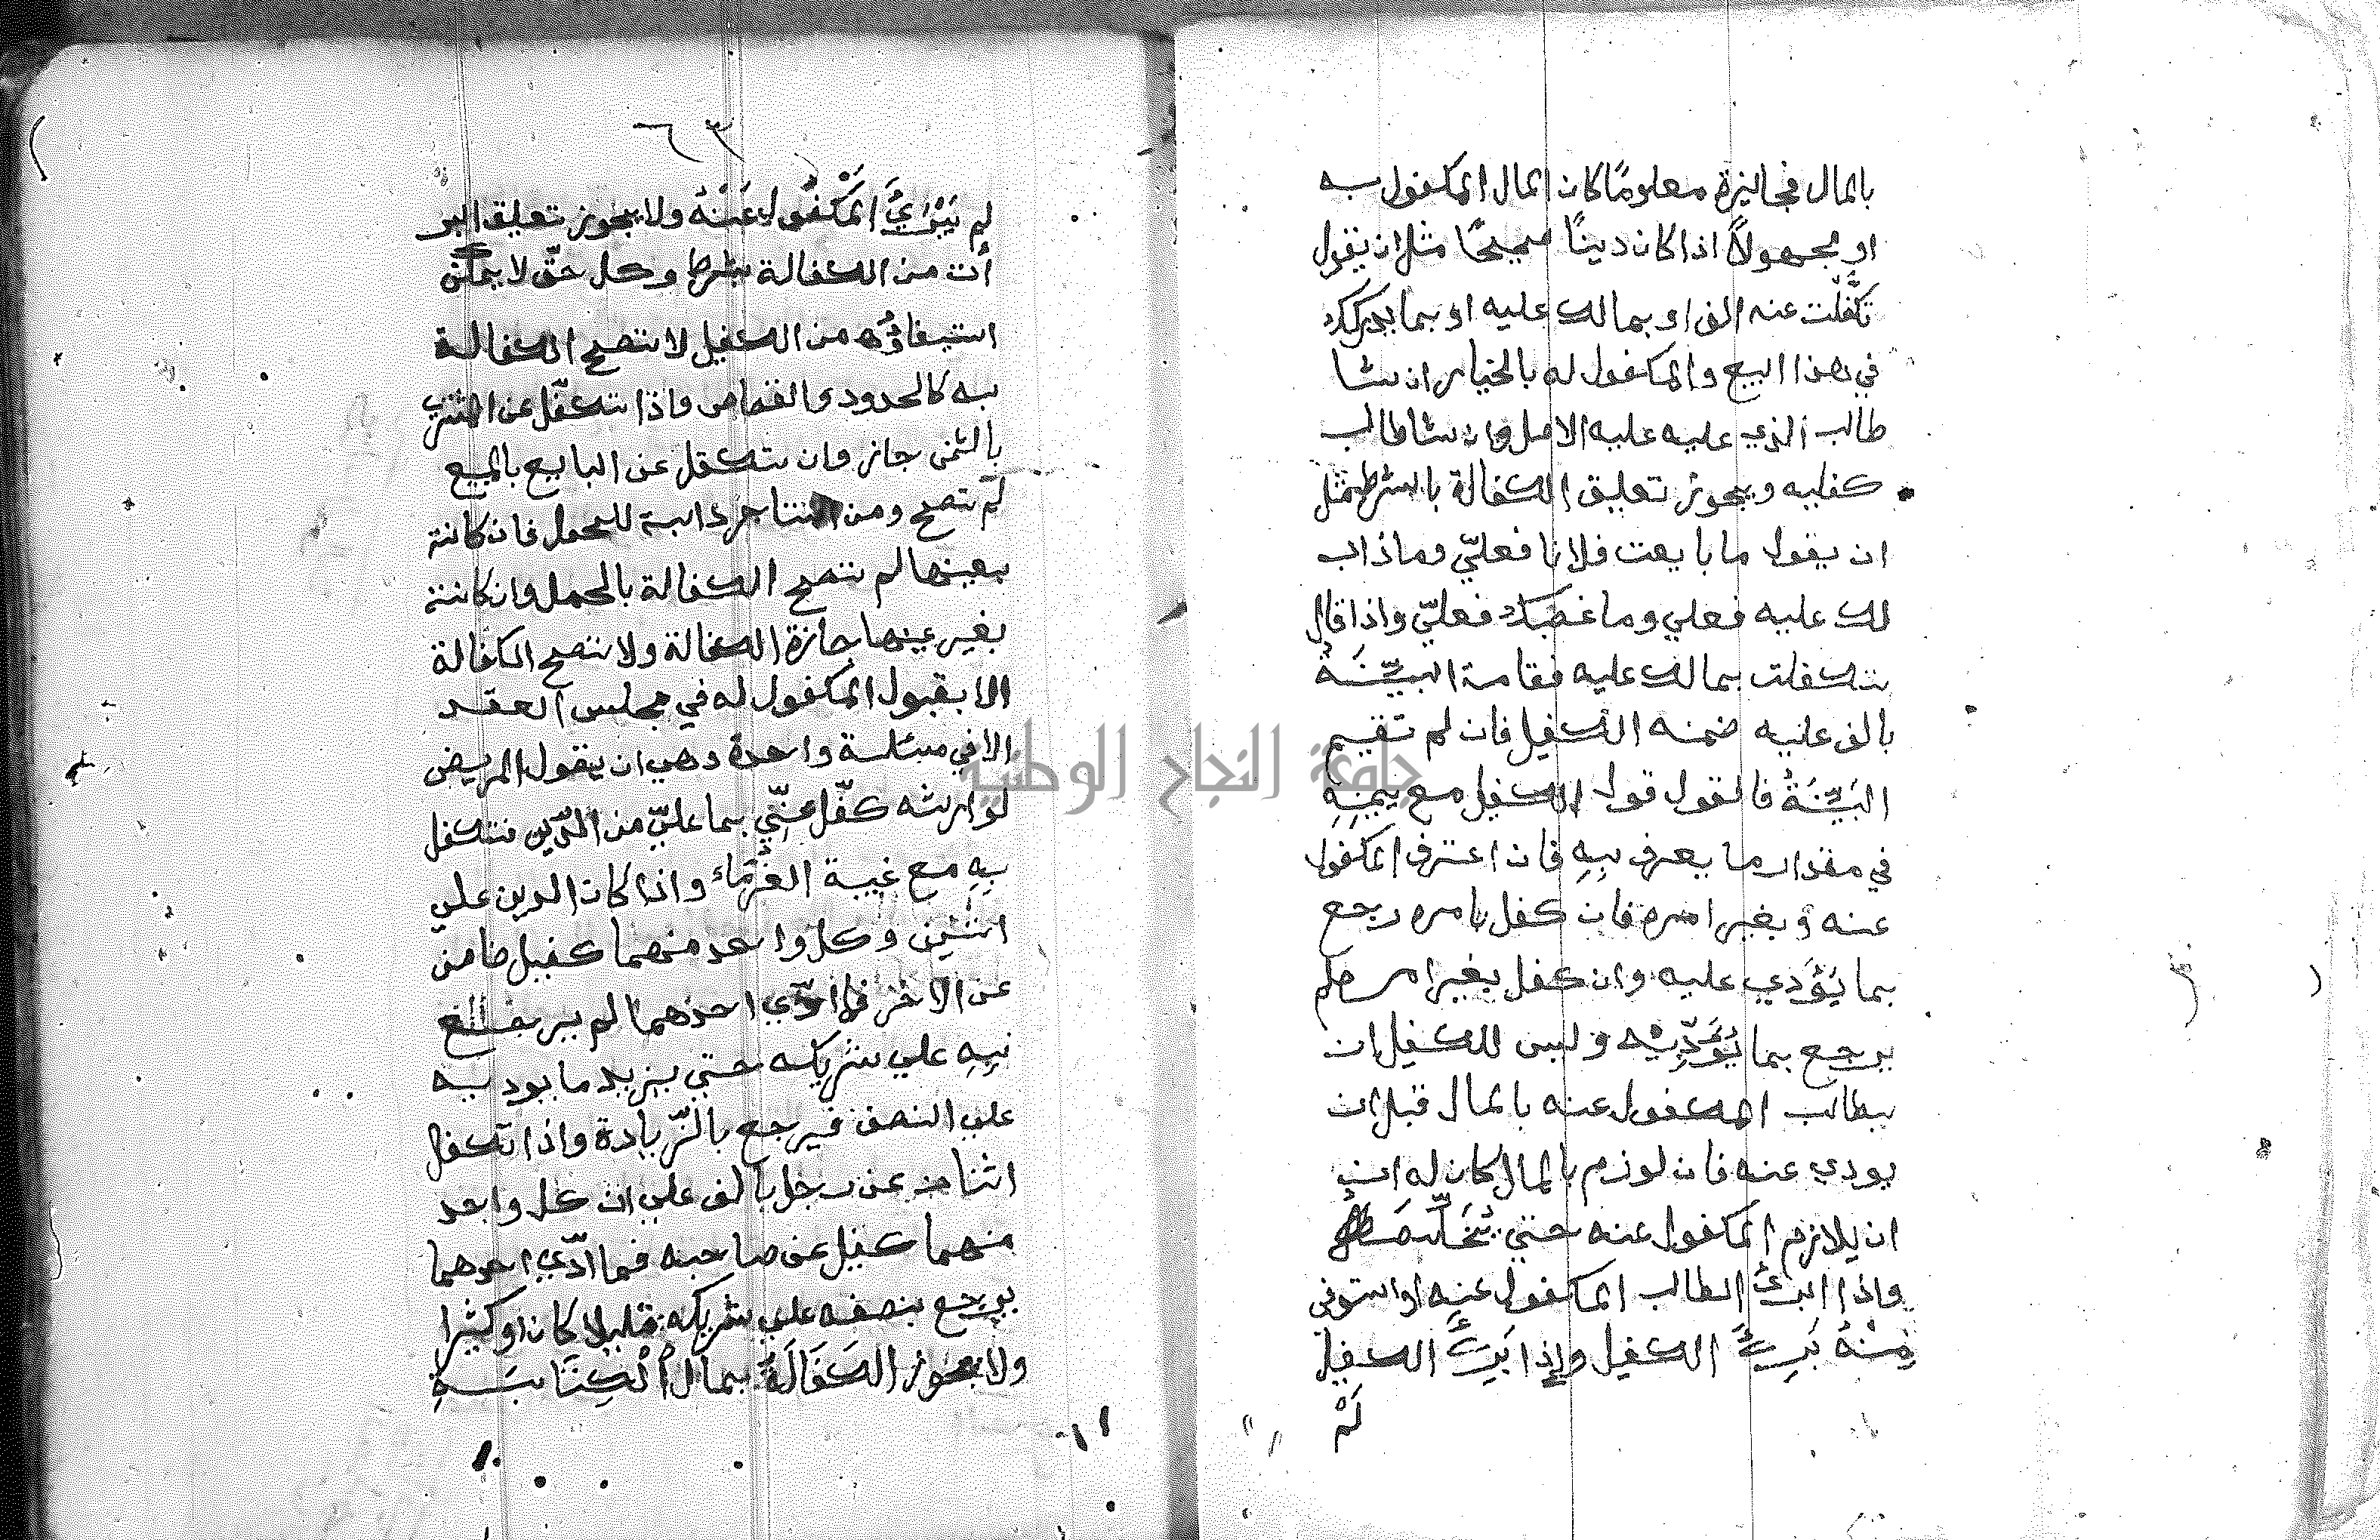 بالمال فجائزة معلومًا كان المال المكفول به
او مجهولاً اذا كان دينًا صحيحًا مثل ان يقول
تكفّلت عنه الف او بما لك عليه او بما يدركك
في هذا البيع والمكفول له بالخيار ان شا
طالب الذي عليه عليه الاصل وان شا طالب
كفليه ويجوز تعليق الكفالة بالشرط مثل
ان يقول ما بايعت فلانا فعليّ وما ذاب
لك عليه فعلي وما غصبك فعليّ واذا قال
تكفلت بما لك عليه فقامة البيّنَةُ
بالف عليه ضمنه الكفيل فان لم تقيم
البَيّنَةُ فالقول قول الكفيل مع يمينِهِ
في مقدار ما يعرف بِهِ فان اعترف المكفول
عنه وبغير امره فان كفل بامره رجع
بما يَؤَدي عليه وان كفل بغير امر ه لم
يرجع بما يُؤَدِّيه وليس للكفيل ان
يطالب المكفول عنه بالمال قبل ان
يودي عنه فان لوزم بالمال كان له ان
ان يلازم المكفول عنه حتي يُخَلّصَهُ
واذا ابرئ الطالب المكفول عنه او استوفي
مِنْهُ بَرِئَ الكفيل واذا ابَرِئَ الكفيل
لَمْ
٦٣
لم يَبْرَئَ المَكْفُول عَنْهُ ولا يجوز تعليق البر
أت من الكفالة بشرط وكل حقّ لا يمكن
استيفاؤُه من الكفيل لا تصح الكفالة
به كالحدود والقصاص واذا تكفّل عن المشتري
بالثمن جاز وان تكفل عن البايع بالمبيع
لم تصح ومن استاجر دابة للحمل فان كانة
بعينها لم تصح الكفالة بالحمل وان كانة
بغير عينها جازة الكفالة ولا تصح الكفالة
الا بقبول المكفول له في مجلس العقد
الا في مسئلة واحدة وهي ان يقول المريض
لوارثه كفّل عنّي بما عليّ من الدّين فتكفل
بِهِ مع غيبة الغُرَماء واذا كان الدين علي
اثنين وكل واحد منهما كفيل ضامن
عن الاخر فما ادّي احدهما لم يرجع
بِهِ علي شريكه حتي يزيد ما يوديه
علي النصف فيرجع بالزّيادة واذا تكفل
اثنان عن رجل بالف علي ان كل واحد
منهما كفيل عن صاحبه فما ادّي احدهما
يرجع بنصفه علي شريكه قليلا كان او كثيرا
ولا يجوز الكَفَالَةُ بمال الْكِتَابَةِ
جامعة النجاح الوطنية